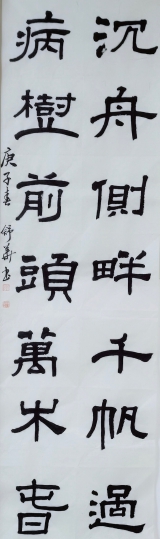 沉舟側畔千帆過
病樹前頭萬木旾
庚子春 舒華書